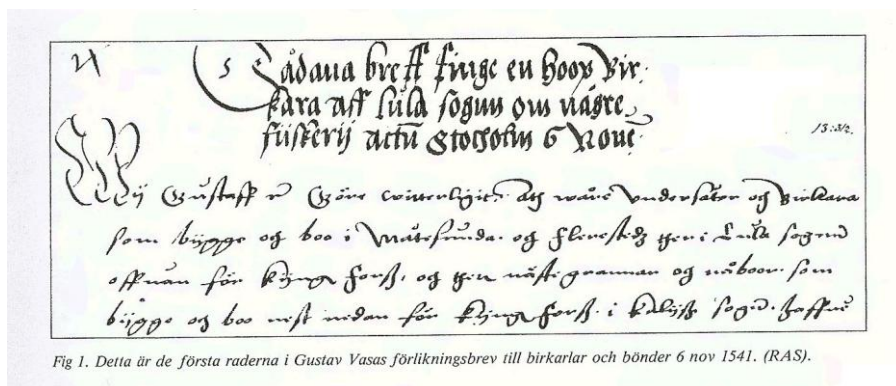 Sådana breff finge en hoop Bir-
kara aff lula sogun om någre
fiiskerij actū Stocholm 6 Noue
Wij Gustaff etc Göre witterligit ath wåre vndersåter og Birkara
som bijgge og boo i Måtesunda og Flerestedz ther i Lula sogend
offuan för Kijnge forss, og then näste grannar og nåboor som
bijgge og boo nest nedan för Kijnge forss i Kalijss sogn
Fig 1. Detta är de första raderna i Gustav Vasas förlikningsbrev till birkarlar och bönder 6 nov 1541. (RAS).